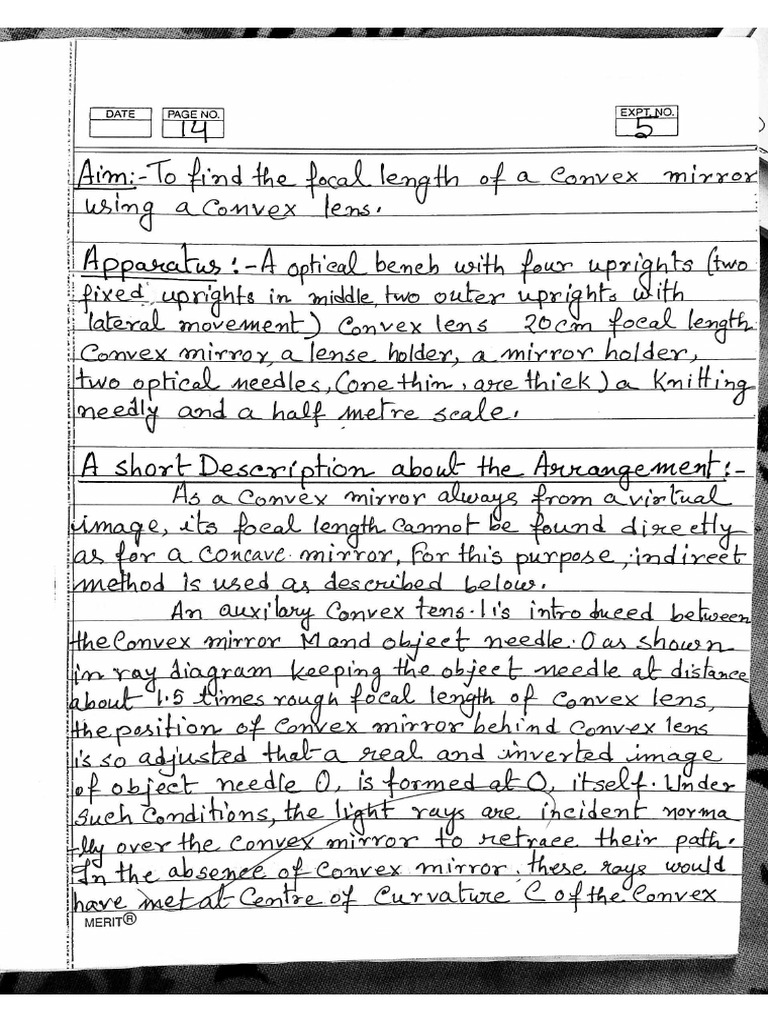 DATE PAGE NO. EXPT. NO.
14 5
Aim:- To find the focal length of a convex mirror
using a convex lens.
Apparatus:- A optical bench with four uprights (two
fixed uprights in middle, two outer uprights with
lateral movement) Convex lens 20cm focal length
Convex mirror, a lense holder, a mirror holder,
two optical needles, (one thin, are thick) a Knitting
needly and a half metre scale.
A short Description about the Arrangement:-
As a convex mirror always from a virtual
image, its focal length cannot be found directly
as for a concave mirror, For this purpose, indirect
method is used as described below.
An auxilary Convex tens. I is introduced between
the Convex mirror M and object needle. O as shown
in ray diagram keeping the object needle at distance
about 1.5 times rough focal length of convex lens,
the position of convex mirror behind convex lens
is so adjusted that a real and inverted image
of object needle O, is formed at O, itself. Under
such Conditions, the light rays are incident norma
-lly over the convex mirror to retrace their path.
In the absence of Convex mirror, these rays would
have met at Centre of Curvature C of the Convex
MERIT®